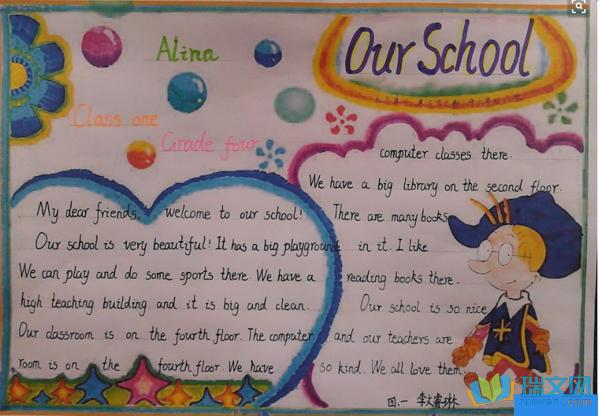 Alina
Our School
Class one
Grade four
My dear friends, welcome to our school!
Our school is very beautiful! It has a big playground
We can play and do some sports there. We have a
high teaching building and it is big and clean.
Our classroom is on the fourth floor. The computer
room is on the fourth floor. We have
computer classes there.
We have a big library on the second floor.
There are many books
in it. I like
reading books there.
Our school is so nice
and our teachers are
so kind. We all love them.
四.一
瑞文网